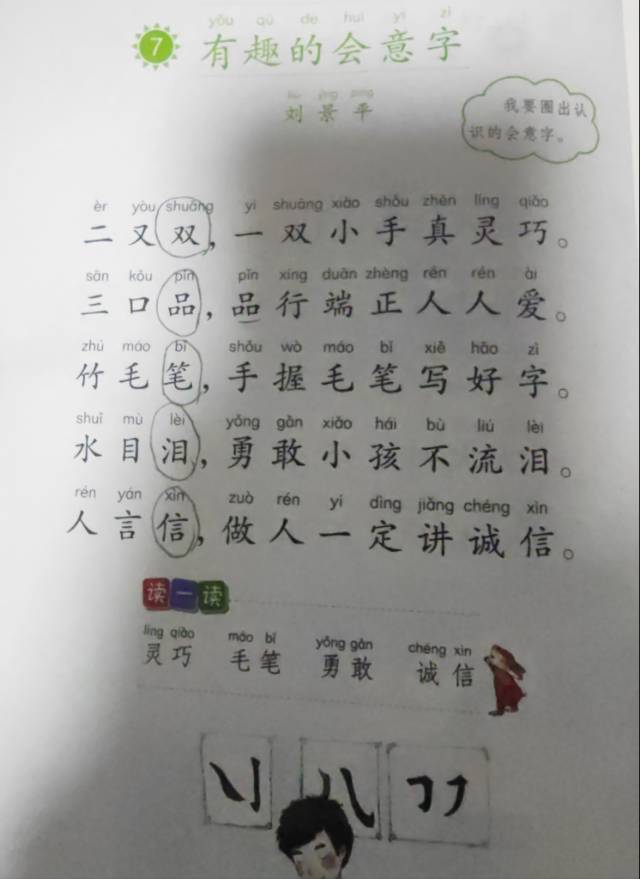 yǒu qù de huì yì zì
7 有趣的会意字
liú jǐng píng
刘景平
我要圈出认
识的会意字。
èr yòu shuāng yì shuāng xiǎo shǒu zhēn líng qiǎo
二又双，一双小手真灵巧。
sān kǒu pǐn pǐn xíng duān zhèng rén rén ài
三口品，品行端正人人爱。
zhú máo bǐ shǒu wò máo bǐ xiě hǎo zì
竹毛笔，手握毛笔写好字。
shuǐ mù lèi yǒng gǎn xiǎo hái bù liú lèi
水目泪，勇敢小孩不流泪。
rén yán xìn zuò rén yí dìng jiǎng chéng xìn
人言信，做人一定讲诚信。
读一读
líng qiǎo máo bǐ yǒng gǎn chéng xìn
灵巧 毛笔 勇敢 诚信